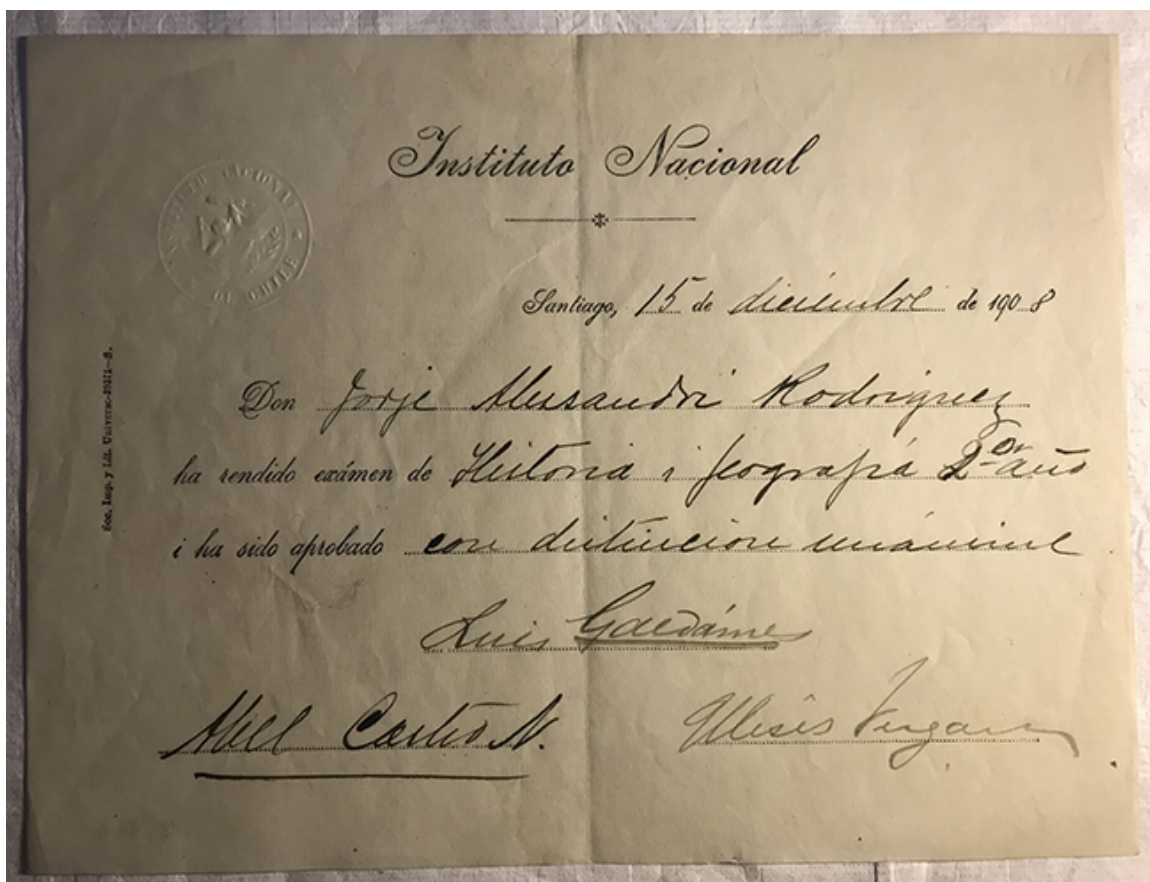 Instituto Nacional
INSTITUTO NACIONAL DE CHILE
Santiago, 15 de diciembre de 1908
Don Jorje Alessandri Rodriguez
ha rendido exámen de Historia i Jeografía 2º año
i ha sido aprobado con distincion unánime
Luis Galdámes
Abel Castro N.
Ulises Vergara
Soc. Imp. y Lit. Universo